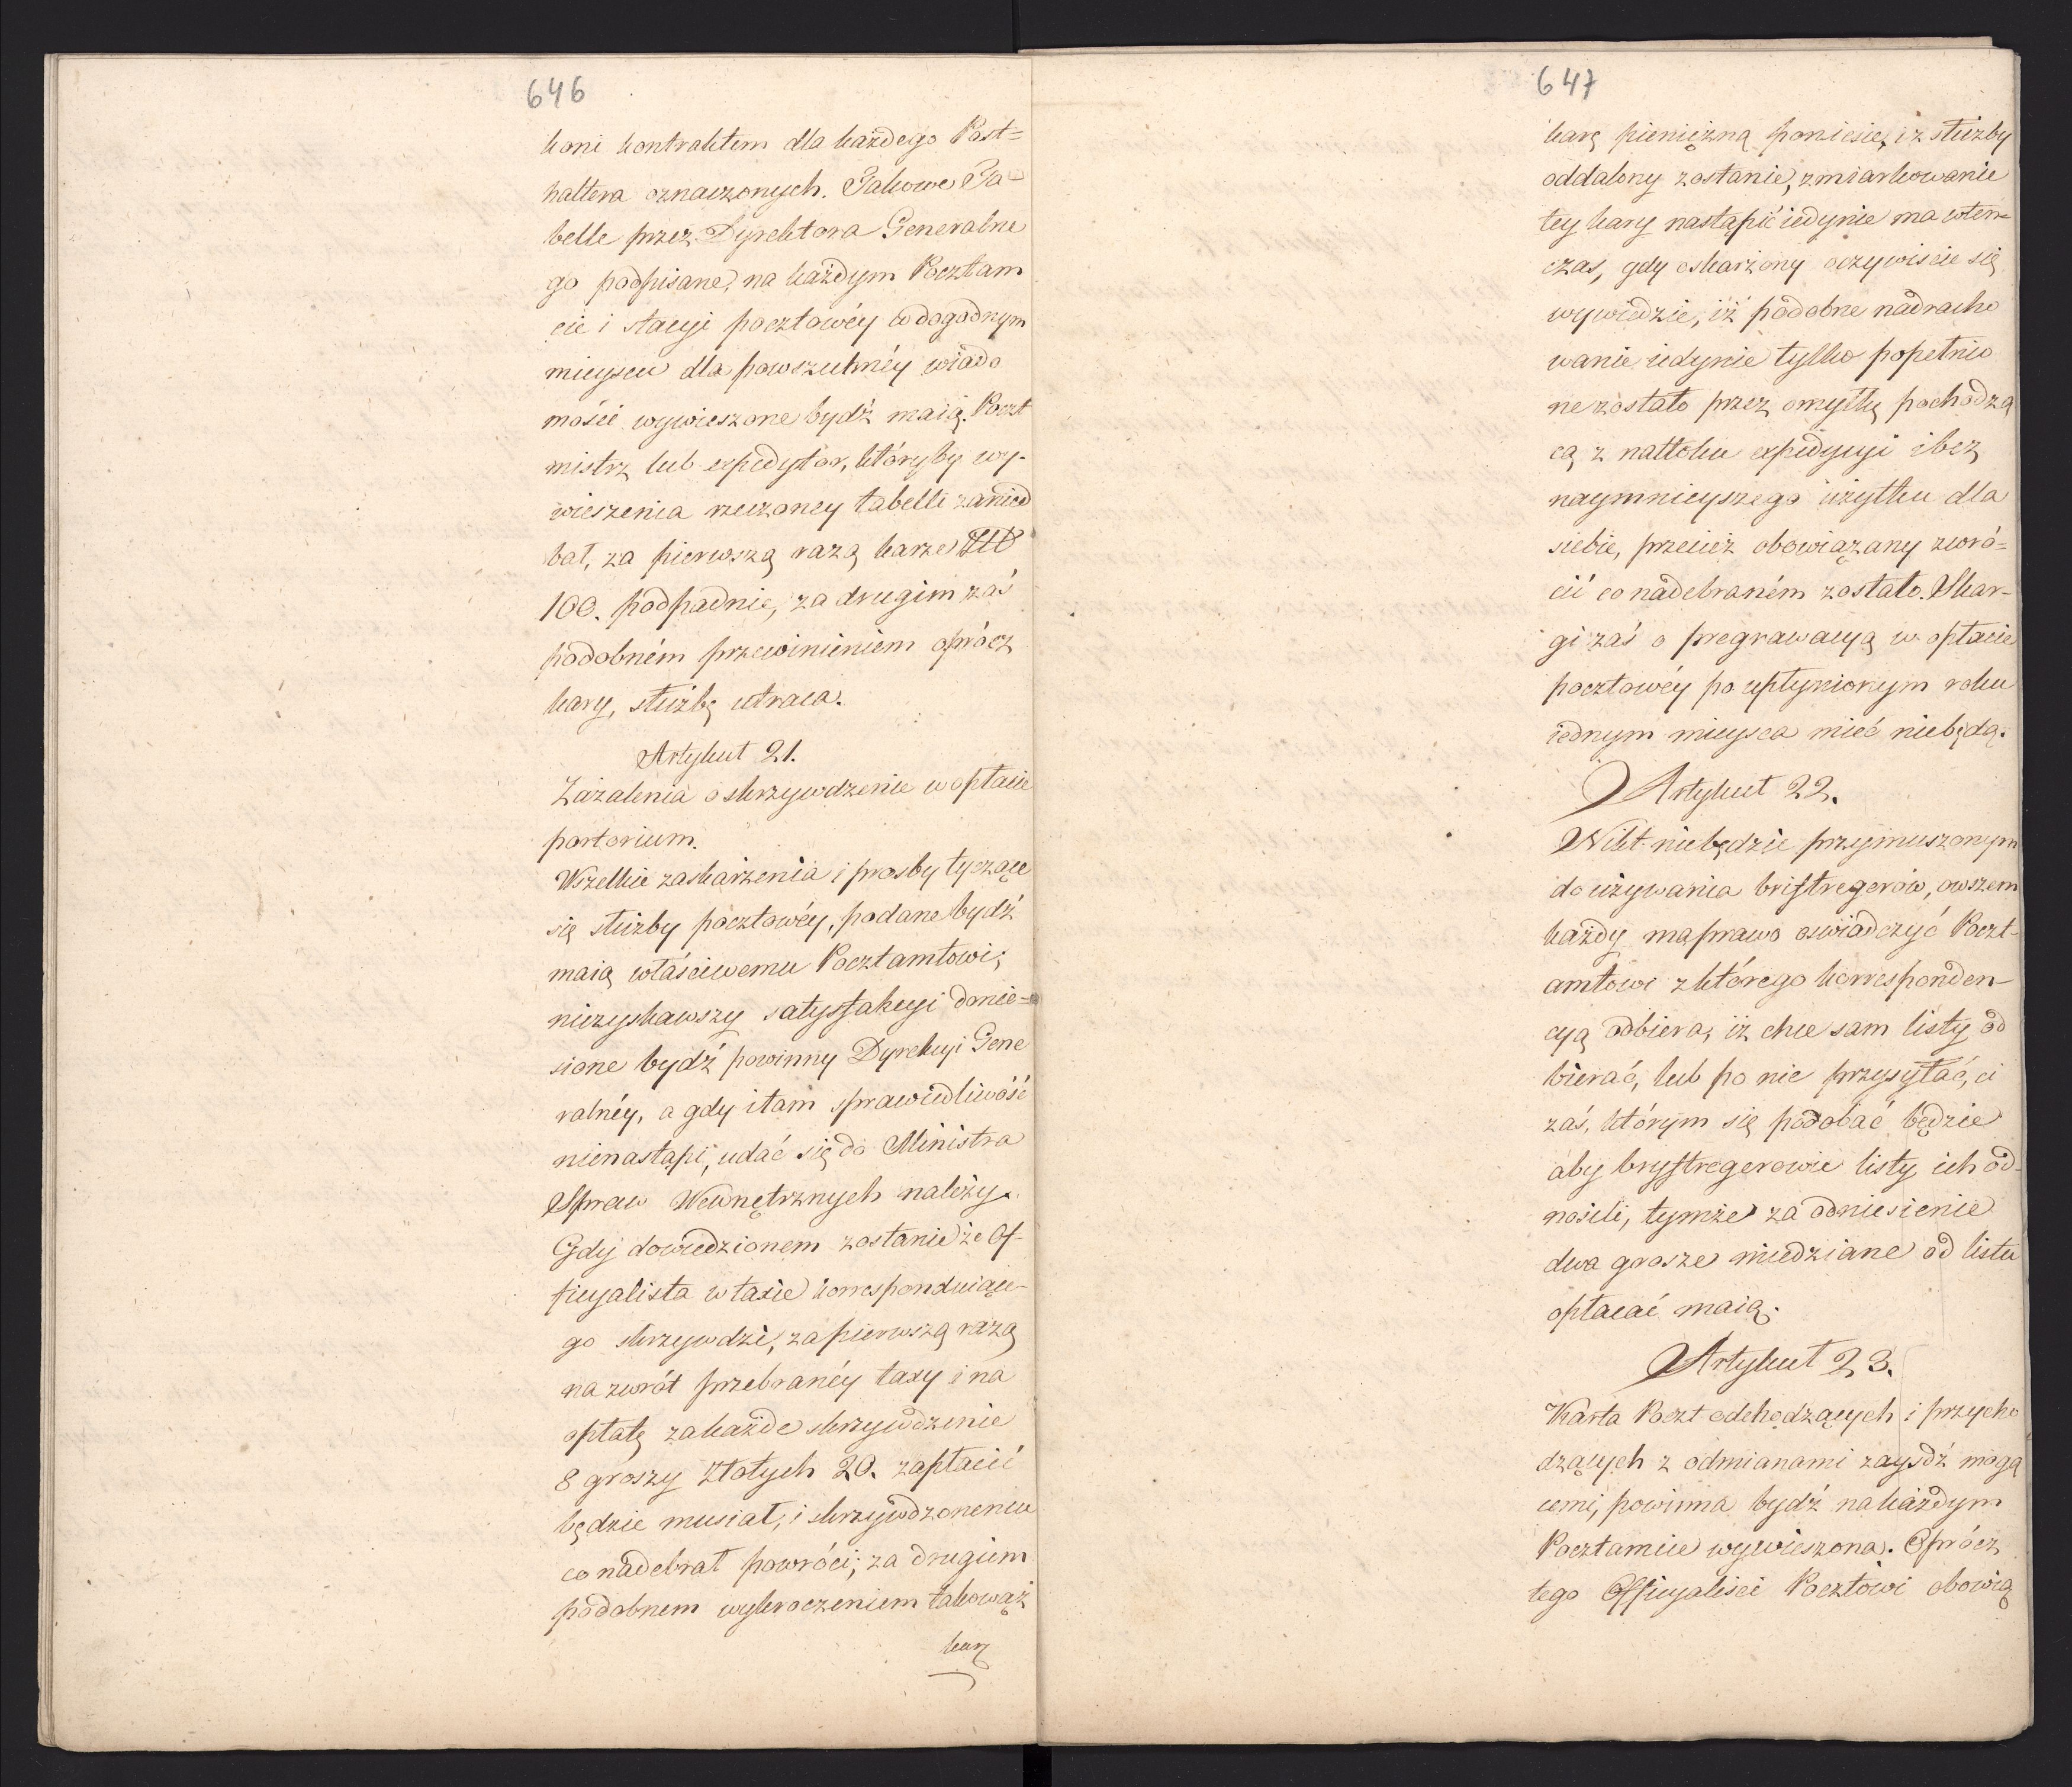 646
koni kontraktem dla każdego Post=
haltera oznaczonych. Takowe Ta=
belle przez Dyrektora Generalne
go podpisane, na każdym Pocztam
cie i stacyi pocztowéy w dogodnym
mieyscu dla powszechnéy wiado
mości wywieszone bydź maią. Poczt
mistrz lub expedytor, któryby wy-
wieszenia rzeczoney tabelli zanied
bał, za pierwszą razą karze
100. podpadnie, za drugim zaś
podobném przewinieniem oprócz
kary, służbę utraca.
Artykuł 21.
Zażalenia o skrzywdzenie w opłacie
portorium.
Wszelkie zaskarżenia i prosby tyczące
się służby pocztowéy, podane bydź
maią właściwemu Pocztamtowi;
niezyskawszy satysfakcyi donie=
sione bydź powinny Dyrekcyi Gene
ralnéy, a gdy i tam sprawiedliwość
nienastąpi, udać się do Ministra
Spraw Wewnętrznych należy.
Gdy dowiedzionem zostanie że Of-
ficyalista w taxie korrespanduiące-
go skrzywdzi, za pierwszą razą
na zwrót przebranéy taxy i na
opłatę za każde skrzywdzenie
8 groszy Złotych 20. zapłacić
będzie musiał, i skrzywdzonemu
co nadebrał powróci; za drugiem
podobnem wykroczeniem takowąż
karę
647
karę pieniężną poniesie, i z służby
oddalony zostanie, zmiarkowanie
tey kary nastąpić iedynie ma wten=
czas, gdy oskarżony oczywiscie się
wywiedzie, iż podobne nadracho
wanie iedynie tylko popełnio
ne zostało przez omyłkę pochodzą
cą z natłoku expedycyi i bez
naymnieyszego użytku dla
siebie, przecież obowiązany zwró=
cić co nadebraném zostało. Skar-
gi zaś o pregrawacyą w opłacie
pocztowéy po upłynionym roku
iednym mieysca mieć niebędą.
Artykuł 22.
Nikt niebędzie przymuszonym
do używania briftregerów, owszem
każdy ma prawo oswiadczyć Poczt-
amtowi z którego korresponden-
cyą odbiera, iż chce sam listy od
bierać, lub po nie przysyłać, ci
zaś, którym się podobać będzie
aby bryftregerowie listy ich od-
nosili, tymże za odniesienie
dwa grosze miedziane od listu
opłacać maią.
Artykuł 23.
Karta Poczt odchodzących i przycho
dzących z odmianami zayśdź mogą
cemi, powinna bydź na każdym
Pocztamcie wywieszona. Oprócz
tego Officyaliści Pocztowi obowią